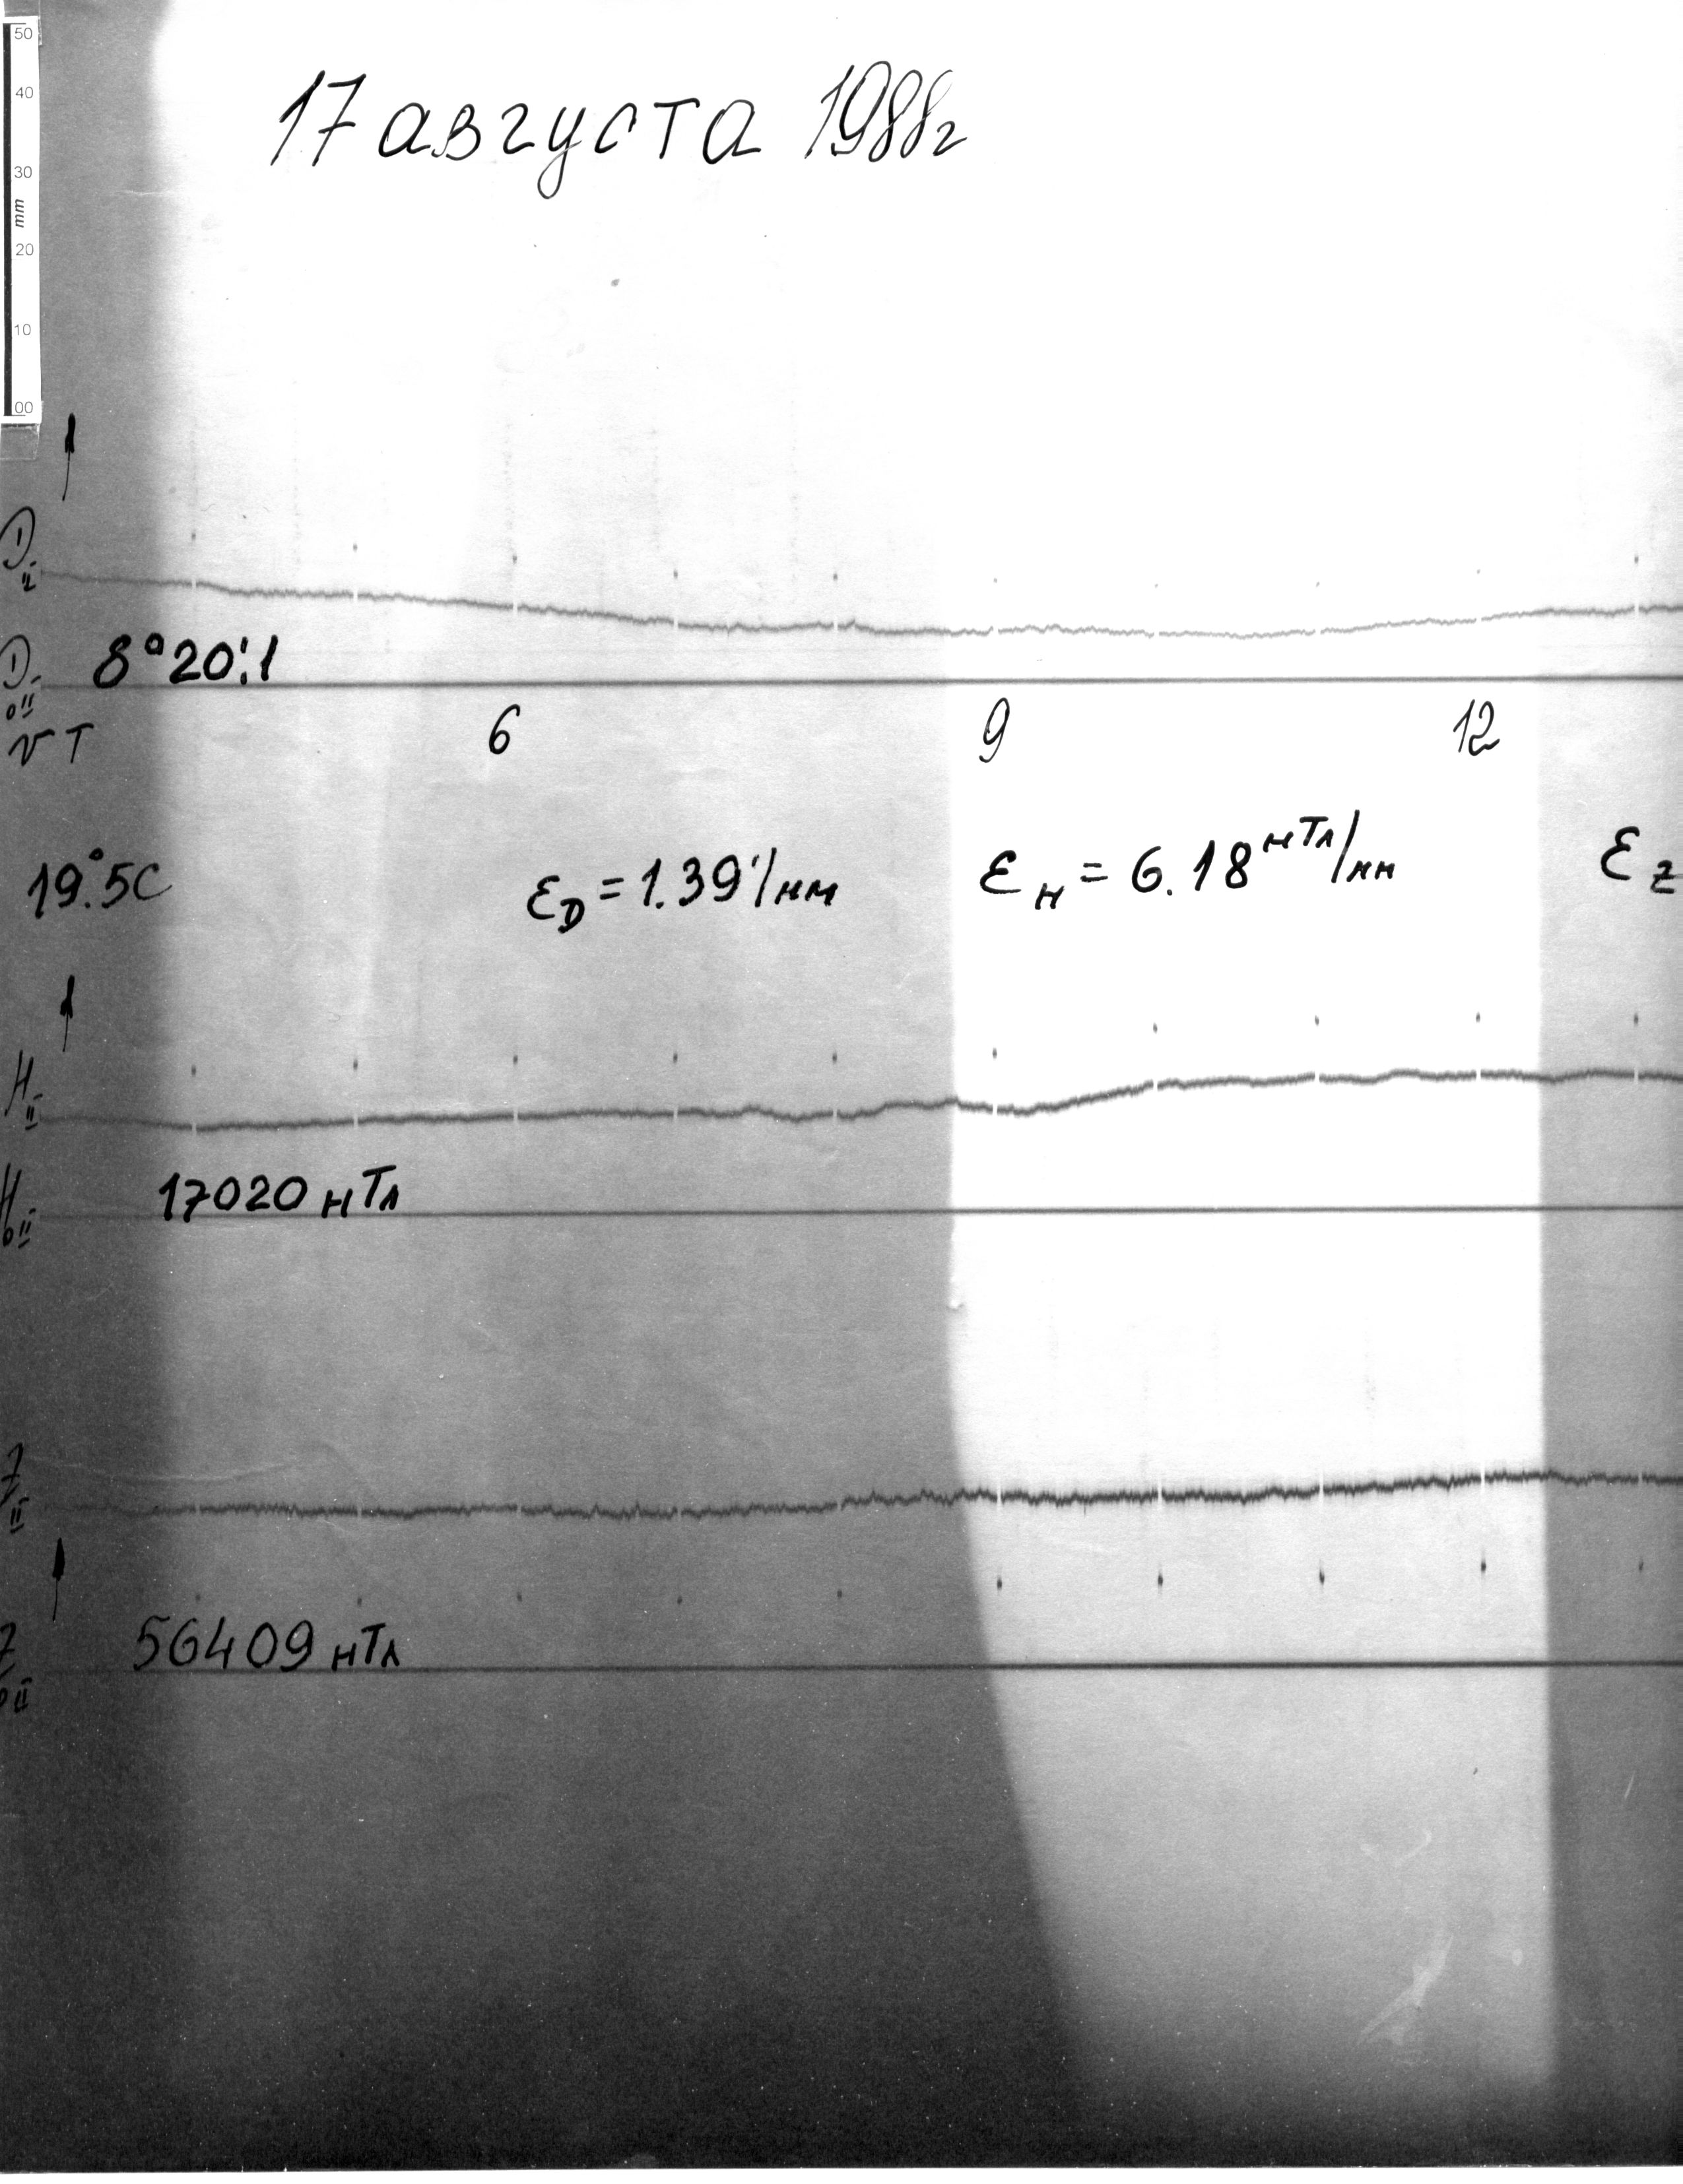 50
40
30
mm
20
10
00
17 августа 1988г
D II
D 0II 8°20!1
UT 6 9 12
19.°5C ε D = 1.39'/мм ε H = 6.18 нТл/мм ε Z
H II
H 0II 17020 нТл
Z II
Z 0II 56409 нТл